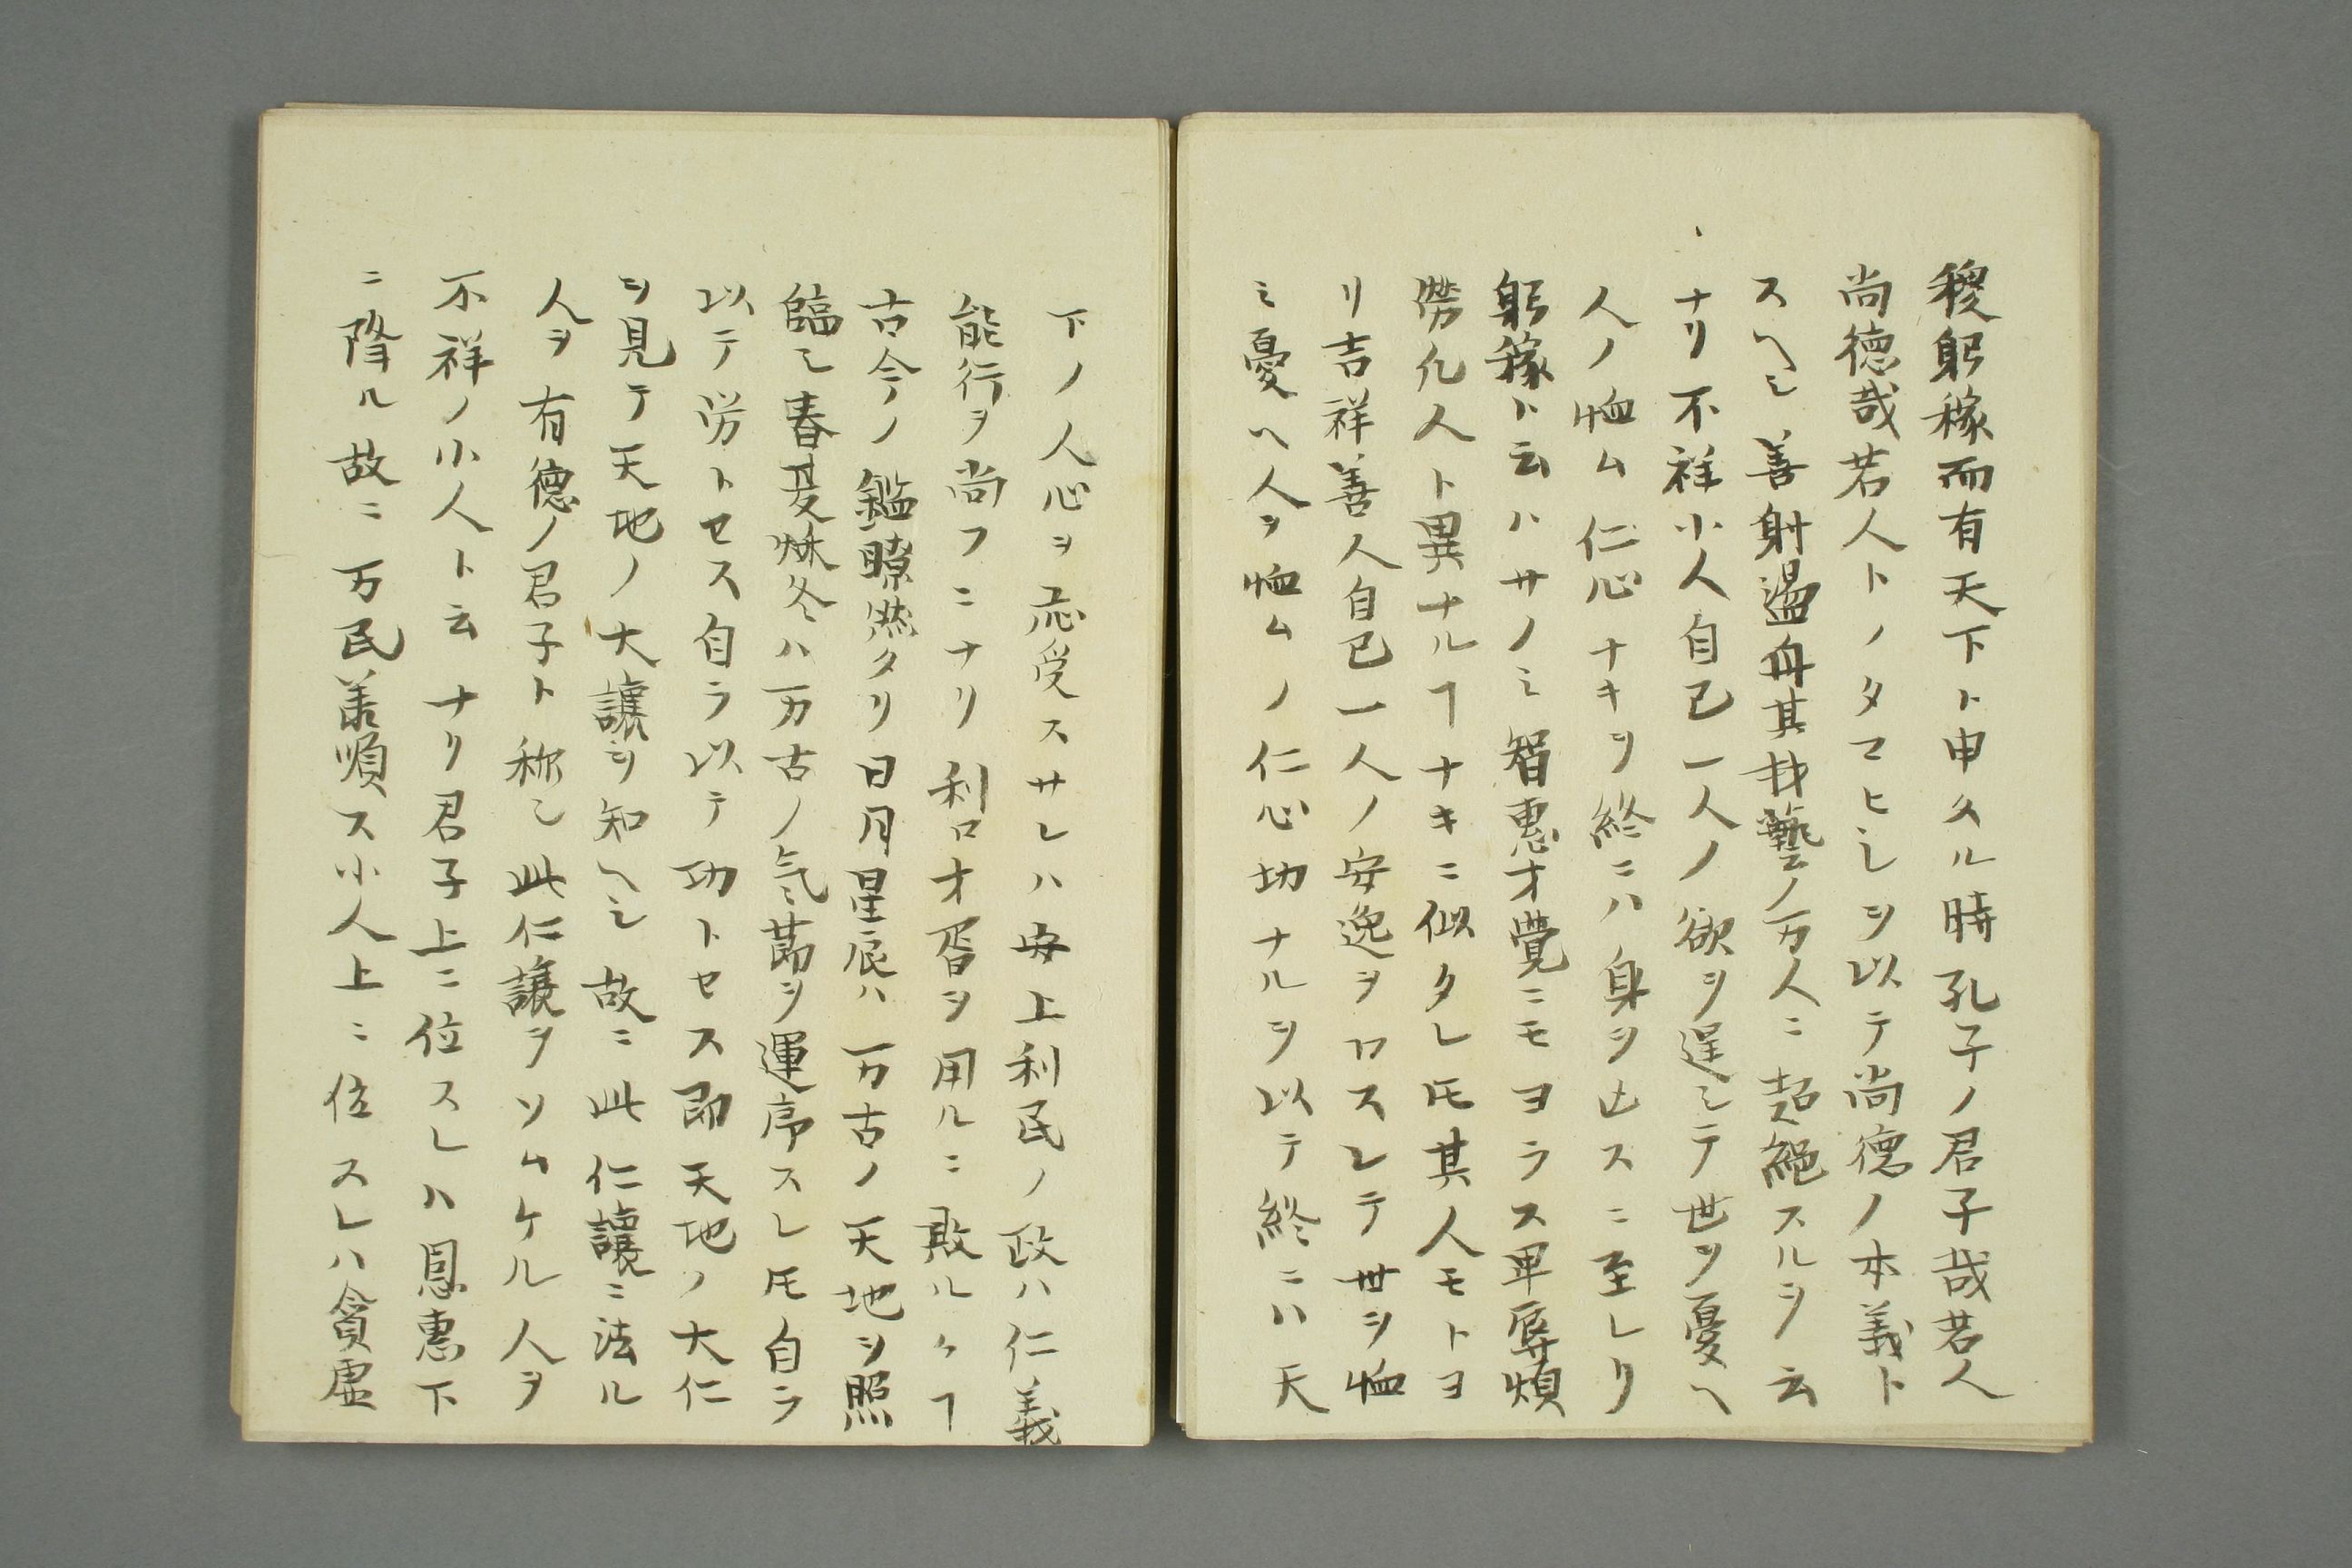 稷躬稼而有天下ト申タル時孔子ノ君子哉若人
尚徳哉若人トノタマヒシヲ以テ尚徳ノ本義ト
スヘシ善射盪舟其才藝ノ万人ニ超絶スルヲ云
ナリ不祥小人自己一人ノ欲ヲ逞シテ世ヲ憂ヘ
人ノ恤ム仁心ナキヲ終ニハ身ヲ亡スニ至レリ
躬稼ト云ハサノミ智惠才覺ニモヨラス卑辱煩
勞凡人ト異ナルヿナキニ似タレ𪜈其人モトヨ
リ吉祥善人自己一人ノ安逸ヲワスレテ世ヲ恤
ミ憂ヘ人ヲ恤ムノ仁心切ナルヲ以テ終ニハ天
下ノ人心ヲ応受スサレハ安上利民ノ政ハ仁義
能行ヲ尚フニナリ利口才胥ヲ用ルニ敗ルヽヿ
古今ノ鑑瞭然タリ日月星辰ハ万古ノ天地ヲ照
臨シ春夏秋冬ハ万古ノ気節ヲ運序スレ𪜈自ラ
以テ労トセス自ラ以テ功トセス即天地ノ大仁
ヲ見テ天地ノ大讓ヲ知ヘシ故ニ此仁讓ニ法ル
人ヲ有德ノ君子ト称シ此仁讓ヲソムケル人ヲ
不祥ノ小人ト云ナリ君子上ニ位スレハ恩惠下
ニ降ル故ニ万民柔順ス小人上ニ位スレハ貪虐